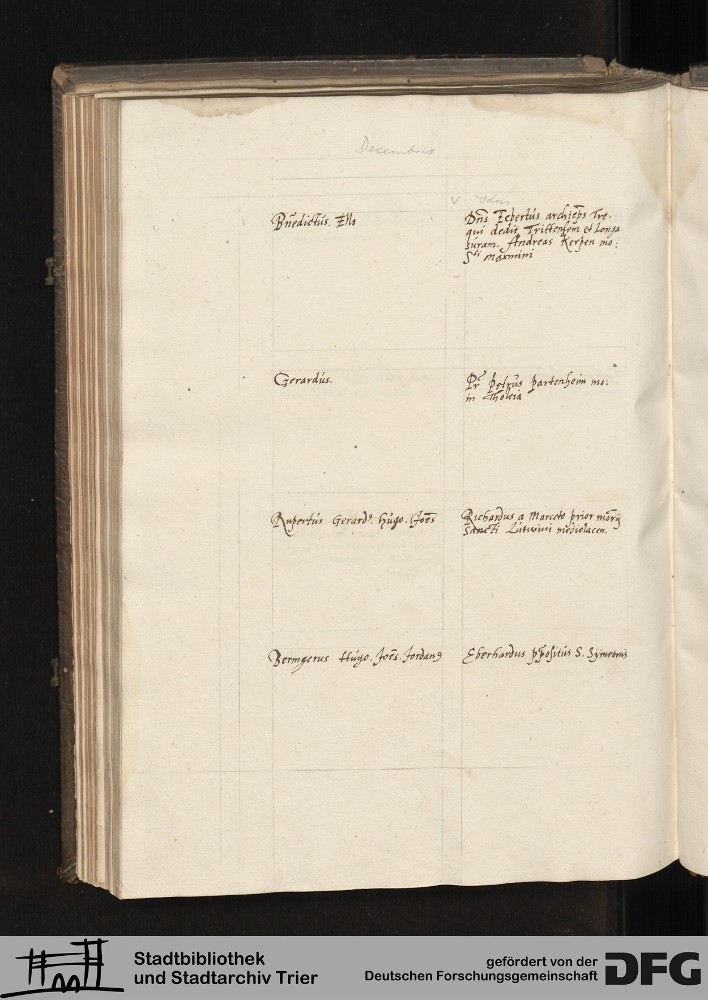 Decembris
V. Idus
Bn̄edictus. Ello
Dn̄s Ecbertus archiep̄s Tre.
qui dedit Trittenhem et Longa
suram. Andreas Kerpen mo:
Sti Maximini
Gerardus.
Pr̄ Petrus Partenheim mo:
in Tholeia
Rupertus Gerard9. Hugo. Joēs
Richardus a Marceto prior
Sancti Lutwini mediolacen.
Hugo. Joēs. Jordan9
Eberhardus p̄positus S. Symeonis
Stadtbibliothek
und Stadtarchiv Trier
gefördert von der
Deutschen Forschungsgemeinschaft
DFG